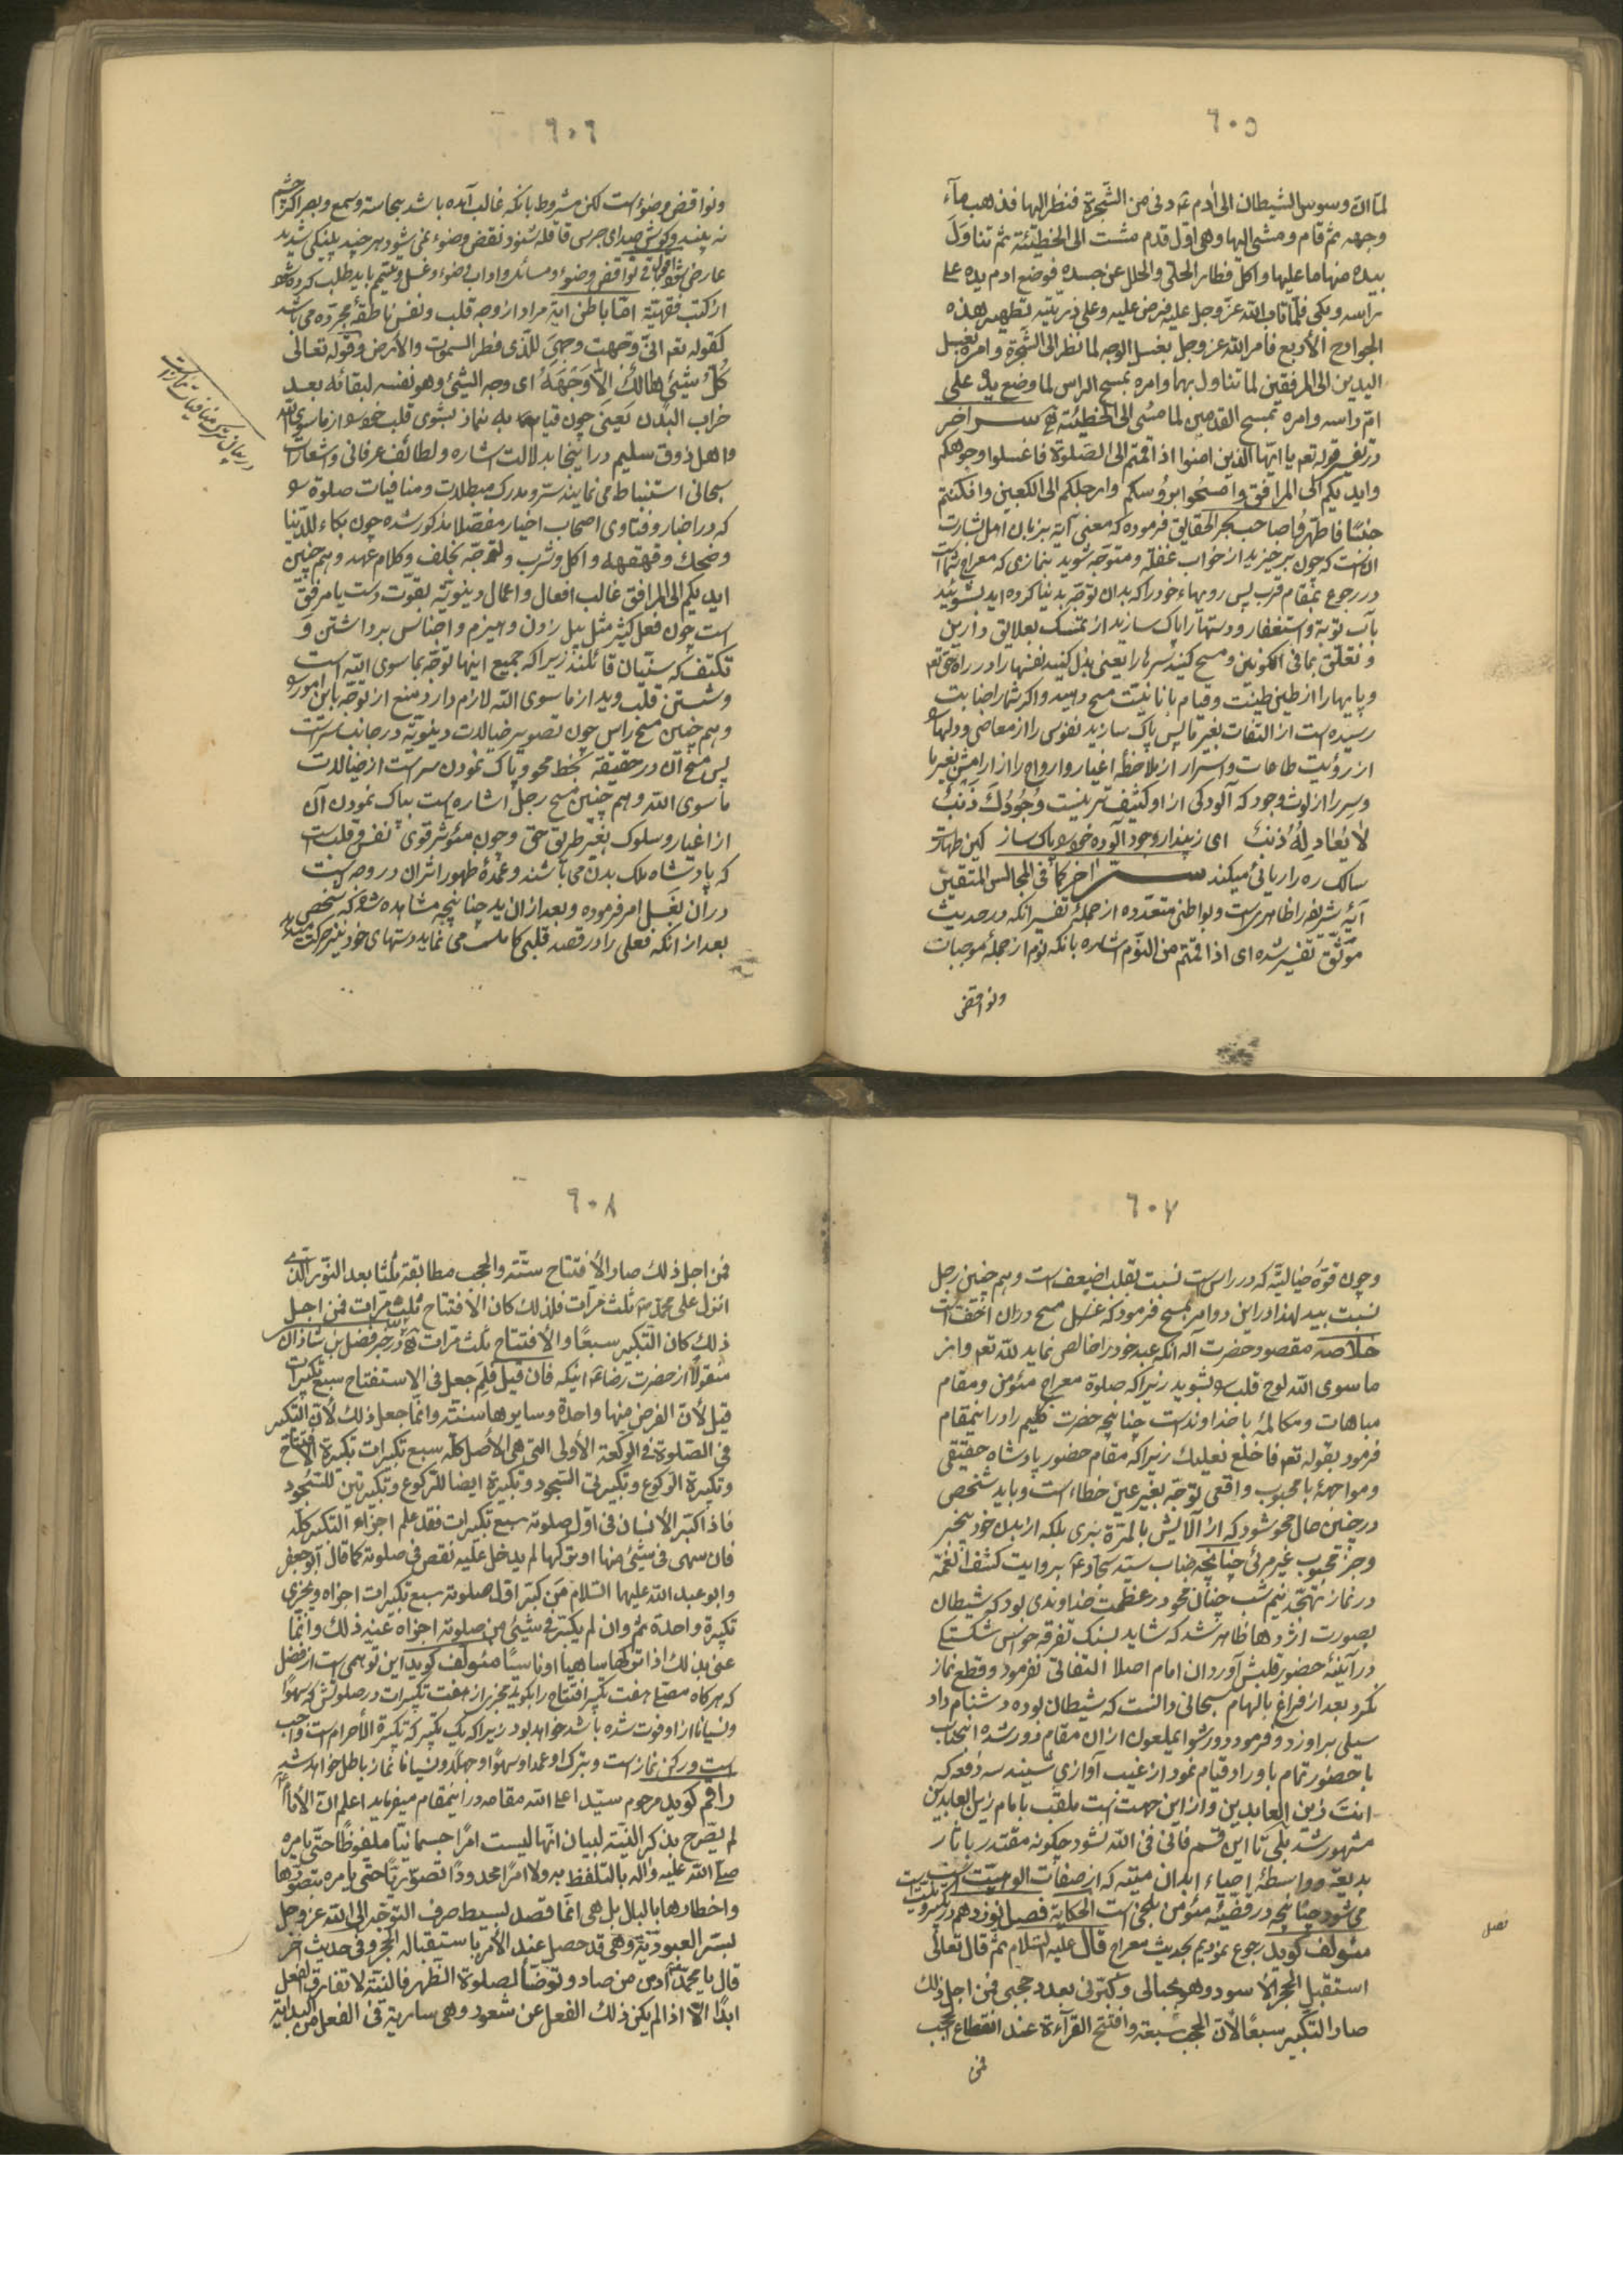 ٦٠٥
لمّا ان وسوس الشیطان الی آدم ع و دنی من الشّجرة فنظر الیها فذهب مآء
وجهه ثم قام و مشی الیها و هی اوّل قدم مشت الی الخطیئة ثم تناول
بیده منها ما علیها و اکل فطار الحلیّ و الحلل عن جسده فوضع ادم یده علی
راسه و بکی فلمّا تاب الله عزّ وجل علیه فرض علیه و علی ذریته تطهیر هذه
الجوارح الأربع فامر الله عز وجل بغسل الوجه لما نظر الی الشّجرة و امره بغسل
الیدین الی المرفقین لما تناول بهما و امره بمسح الراس لما وضع یده علی
امّ راسه و امره بمسح القدمین لما مشی الی الخطیئة سر اخر
در تفسیر قوله تعم یا ایّها الّذین امنوا اذا قمتم الی الصّلوة فاغسلوا وجوهکم
و ایدیکم الی المرافق و امسحوا برؤسکم و ارجلکم الی الکعبین و ان کنتم
جنبًا فاطهّروا صاحب بحر الحقایق فرموده که معنی آیه بزبان اهل اشارت
انست که چون برخیزید از خواب غفلة و متوجّه شوید بنمازی که معراج شما است
در رجوع بمقام قرب پس رویهاء خود را که بدان توجّه بدنیا کرده اید بشوئید
بآب توبة و استغفار و دستها را پاک سازید از تمسک بعلایق دارین
و تعلّق بما فی الکونین و مسح کنید سرها را یعنی بذل کنید نفسها را در راه حق تعم
و پایها را از طین طینت و قیام بانانیّت مسح دهید و اکر شما را جنابت
رسیده است از التفات بغیر ما پس پاک سازید نفوس را از معاصی و دلها
از رؤیت طاعات و اسرار از ملاحظهٔ اغیار و ارواح را از ارامش بغیر ما
و سر را از لوث وجود که آلودکی از او کثیف تر نیست وُجُودُكَ ذَنبٌ
لا یُقاد له ذنب ای ز پندار وجود آلوده خود پاک ساز کین طهارت
سالک ره را ربائی میکند سر اخر کما فی المجالس المتقین
آیهٔ شریفه را ظاهریست و بواطنی متعدّده از جملهٔ تفسیر انکه در حدیث
موثّق تفسیر شده ای اذا قمتم من النّوم اشاره بانکه نوم از جملهٔ موجبات
و نواقض
٦٠٦
و نواقض وضوء است لکن مشروط بانکه غالب آمده باشد بحاسّه و سمع و بصر اکر چشم
نه بیند و کوش صدای جرس قافله شنود نقض وضوء نمی شود هر چند پلنکی شدید
عارض و نواقض وضوء و مسائل و اداب وضوء و غسل و تیمّم باید طلب کرده شود
از کتب فقهیّة امّا باطن ایة مراد از وجه قلب و نفس ناطقهٔ مجرّده می باشد
کقوله تعم انّی وجّهت وجهی للّذی فطر السموت و الأرض و قوله تعالی
کلّ شیئ هالك الّا وجهه ای وجه الشیئ و هو نفسه لبقائه بعد
خراب البدن یعنی چون قیام به نماز بشوی قلب خود از ماسوی الله
و اهل ذوق سلیم در اینجا بدلالت اشاره و لطائف عرفانی و اشعارات
سبحانی استنباط می نمایند سرّ و مدرک مبطلات و منافیات صلوة
که در اخبار و فتاوی اصحاب اخیار مفصّلا مذکور شده چون بکاء للدّنیا
و ضحك و قهقهه و اکل و شرب و توجّه بخلف و کلام عهد و هم چنین
ایدیکم الی المرافق غالب افعال و اعمال دنیویّه بقوّت دست یا مرفق
است چون فعل کثیر مثل بیل زدن و هیزم و اجناس برداشتن و
تکتّف که سنّیان قائلند زیرا که جمیع اینها توجّه بما سوی الله است
و شستن قلب و ید از ما سوی الله لازم دارد منع از توجّه باین امور
و هم چنین مسح راس چون تصویر خیالات دنیویّه در جانب سر است
پس مسح آن در حقیقة بخط محو و پاک نمودن سر است از خیالات
ما سوی الله و هم چنین مسح رجل اشاره است بپاک نمودن آن
از اغیار و سلوک بغیر طریق حق و چون مؤثر قوی نفس و قلب است
که پادشاه ملک بدن می باشند و عمدهٔ ظهور اثر ان در وجه است
در ان بغسل امر فرموده و بعد از ان ید چنانچه مشاهده شود که شخص
بعد از انکه فعلی را در قصد قلبی کامل می نماید دستهای خود نیز حرکت میدهد
در بیان سرّ منافیات نماز است
٦٠٧
و چون قوّهٔ خیالیّه که در راس است نسبت بقلب اضعف است و هم چنین رجل
نسبت بید لهذا در این دو امر بمسح فرمود که غسل مسح در ان اخفّ است
خلاصه مقصود حضرت اله انکه عبد خود را خالص نماید لله تعم و از
ما سوی الله لوح قلب بشوید زیرا که صلوة معراج مئومن و مقام
مباهات و مکالمهٔ با خداوند است چنانچه حضرت کلیم را در اینمقام
فرمود بقوله تعم فاخلع نعلیك زیرا که مقام حضور پادشاه حقیقی
و مواجهه با محبوب واقعی توجّه بغیر عین خطاء است و باید شخص
در چنین حال محو شود که از آلایش بالمرّة بری بلکه از بدن خود بیخبر
و جز محبوب غیر مرئی چنانچه جناب سیّد سجّاد ع بروایت کشف الغمّه
در نماز تهجّد نیم شب چنان محو در عظمت خداوندی بود که شیطان
بصورت اژدها ظاهر شد که شاید بسنک تفرقه حواس شکستکی
در آئینهٔ حضور قلبش آورد ان امام اصلا التفاتی نفرمود و قطع نماز
نکرد بعد از فراغ بالهام سبحانی دانست که شیطان بوده دشنام داد
سیلی بر او زد و فرمود دور شو ایملعون از ان مقام دور شد انجناب
با حضور تمام باوراد قیام نمود از غیب آوازی شنید سه دفعه که
انت زین العابدین و از این جهت است ملقّب بامام زین العابدین
مشهور شد بلی تا این قسم فانی فی الله نشود چکونه مقتدر باثار
بدیعة و واسطهٔ احیاء ابدان میّته که از صفات الوهیّت است
می شود چنانچه در قضیّهٔ مئومن بلخی است الحکایة فصل نوزدهم در تکبیرات است
مئولف کوید رجوع نمودیم بحدیث معراج قال علیه السّلام ثمّ قال تعالی
استقبل الحجر الأسود و هو بحیالی و کبّرنی بعدد حجبی فمن اجل ذلك
صار التکبیر سبعًا لأنّ الحجب سبعة و افتتح القرآءة عند انقطاع الحجب
فمن
فصل
٦٠٨
فمن اجل ذلك صار الأفتتاح سنّته و الحجب مطابقة ثلثا بعد النّور الّذی
انزل علی محمّد ص ثلث مرّات فلذلك کان الأفتتاح ثلث مرّات فمن اجل
ذلك کان التّکبیر سبعًا و الأفتتاح ثلث مرّات در خبر فضل بن شاذان
منقولا از حضرت رضا ع اینکه فان قیل فلم جعل فی الاستفتاح سبع تکبیرات
قیل لأنّ الفرض منها واحدة و سایرها سنّته و انّما جعل ذلك لأنّ التکبیر
فی الصّلوة فی الرکعة الأولی التی هی الأصل کلّه سبع تکبیرات تکبیرة الأفتتاح
و تکبیرة الرکوع و تکبیرتی السّجود و تکبیرة ایضا للرّکوع و تکبیرتین للسّجود
فاذا کبّر الأنسان فی اوّل صلوته سبع تکبیرات فقد علم اجزاء التکبیر کلّه
فان سهی فی شیئ منها او ترکها لم یدخل علیه نقص فی صلوته کما قال ابو جعفر
و ابو عبد الله علیهما السّلام من کبّر اوّل صلوته سبع تکبیرات اجزاه و یجزی
تکبیرة واحدة ثم و ان لم یکبّر فی شیئ من صلوته اجزاه عنه ذلك و انّما
عنی بذلك اذا ترکها ساهیا او ناسیًا مئولف کوید این توهمی است از فضل
که هرکاه مصلّی هفت تکبیر افتتاح را بکوید مجزیز از هفت تکبیرات در صلوتش که سهوًا
و نسیانا از او فوت شده باشد خواهد بود زیرا که یک تکبیر که تکبیرة الأحرام است واجب
است و رکن نماز است و بترک او عمدا و سهوًا و جهلًا و نسیانا نماز باطل خواهد شد
راقم کوید مرحوم سیّد اعلی الله مقامه در اینمقام میفرماید اعلم انّ الأمام ع
لم یصّرح بذکر النیّة لبیان انّها لیست امرًا جسمانیًّا ملفوظًا حتّی یامره
صلّی الله علیه و اله بالتلفظ به و لا امرًا محدودًا تصوّریًّا حتی یامره بتصوّرها
و اخطارها بالبال بل هی انّما قصد بسیط صرف التوجّه الی الله عز وجل
بسرّ العبودیّة و هی قد حصل عند الأمر باستقباله الحجر و فی حدیث اخر
قال یا محمّد ص ادن من صاد و توضّأ لصلوة الظّهر فالنّیة لا تفارق الفعل
ابدًا الّا اذا لم یکن ذلك الفعل عن شعور و هی ساریة فی الفعل من البدایة